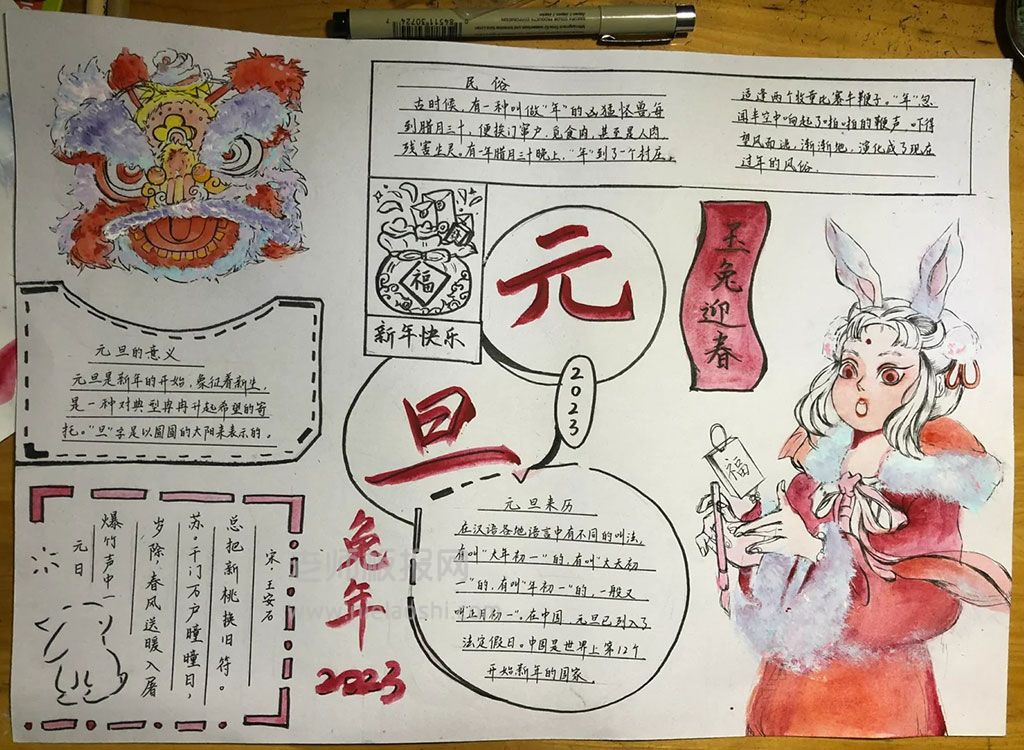 民俗
古时候,有一种叫做"年"的凶猛怪兽每
到腊月三十,便挨门窜户,觅食肉,甚至是人肉
残害生灵。有一年腊月三十晚上,"年"到了一个村庄。
适逢两个牧童比赛牛鞭子。"年"忽
闻半空中响起了啪啪的鞭声,吓得
望风而逃,渐渐地,演化成了现在
过年的风俗.
福
新年快乐
元
旦
2023
玉兔迎春
福
元旦的意义
元旦是新年的开始,象征着新生,
是一种对典型冉冉升起希望的寄
托。"旦"字是以圆圆的太阳来表示的。
元旦来历
在汉语各地语言中有不同的叫法,
有叫"大年初一"的,有叫"大天初
一"的,有叫"年初一"的,一般又
叫"正月初一"。在中国,元旦已列入了
法定假日。中国是世界上第12个
开始新年的国家.
兔年
2023
元日
宋·王安石
爆竹声中一
岁除,春风送暖入屠
苏。千门万户曈曈日,
总把新桃换旧符。
老师板报网
084511307247